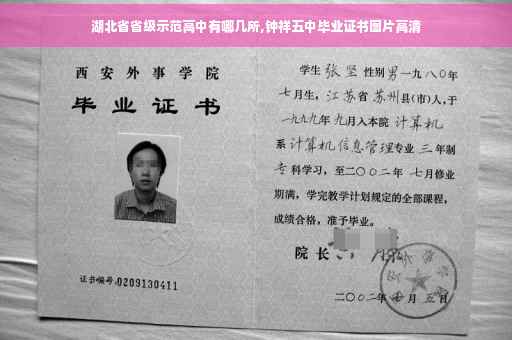 湖北省省级示范高中有哪几所,钟祥五中毕业证书图片高清
西安外事学院
毕业证书
证书编号:0209130411
学生 张坚 性别男一九八〇年
七月生，江苏省苏州县(市)人,于
一九九九年九月入本院 计算机
系计算机信息管理专业 三 年制
专科学习，至二〇〇二年 七月修业
期满，学完教学计划规定的全部课程，
成绩合格，准予毕业。
院长
二〇〇二年 月五日